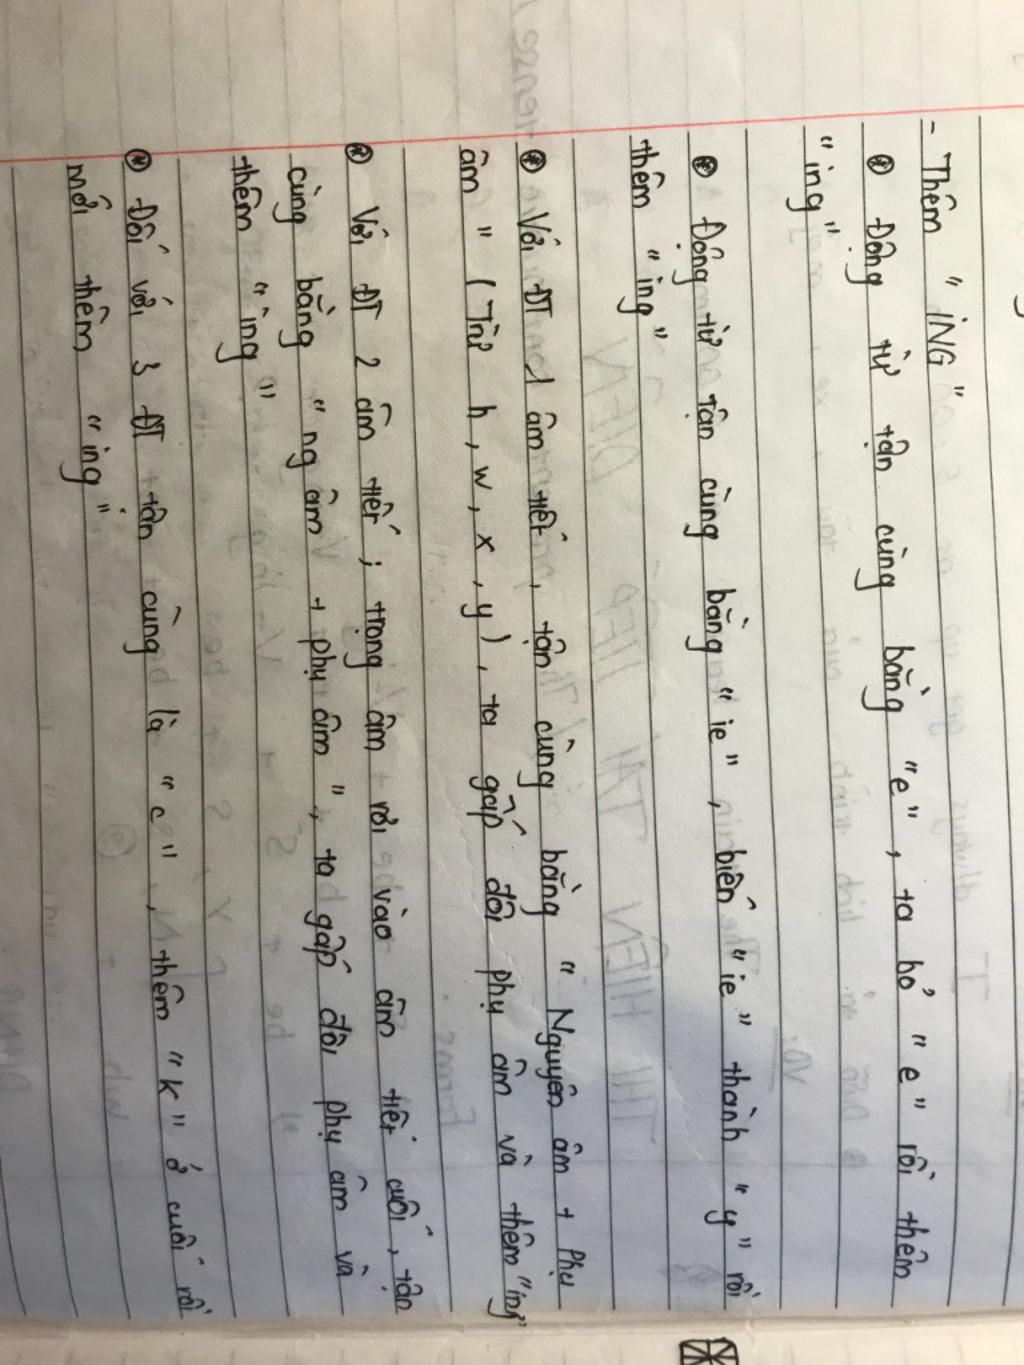 - Thêm "ING"
⊛ Động từ tận cùng bằng "e", ta bỏ "e" rồi thêm
"ing".
⊛ Động từ tận cùng bằng "ie", biến "ie" thành "y" rồi
thêm "ing"
⊛ Với ĐT 1 âm tiết, tận cùng bằng "Nguyên âm + Phụ
âm" (Trừ h, w, x, y), ta gấp đôi phụ âm và thêm "ing"
⊛ Với ĐT 2 âm tiết; trọng âm rơi vào âm tiết cuối, tận
cùng bằng "ng âm + phụ âm", ta gấp đôi phụ âm và
thêm "ing"
⊛ Đối với 3 ĐT tận cùng là "c", thêm "k" ở cuối rồi
mới thêm "ing"